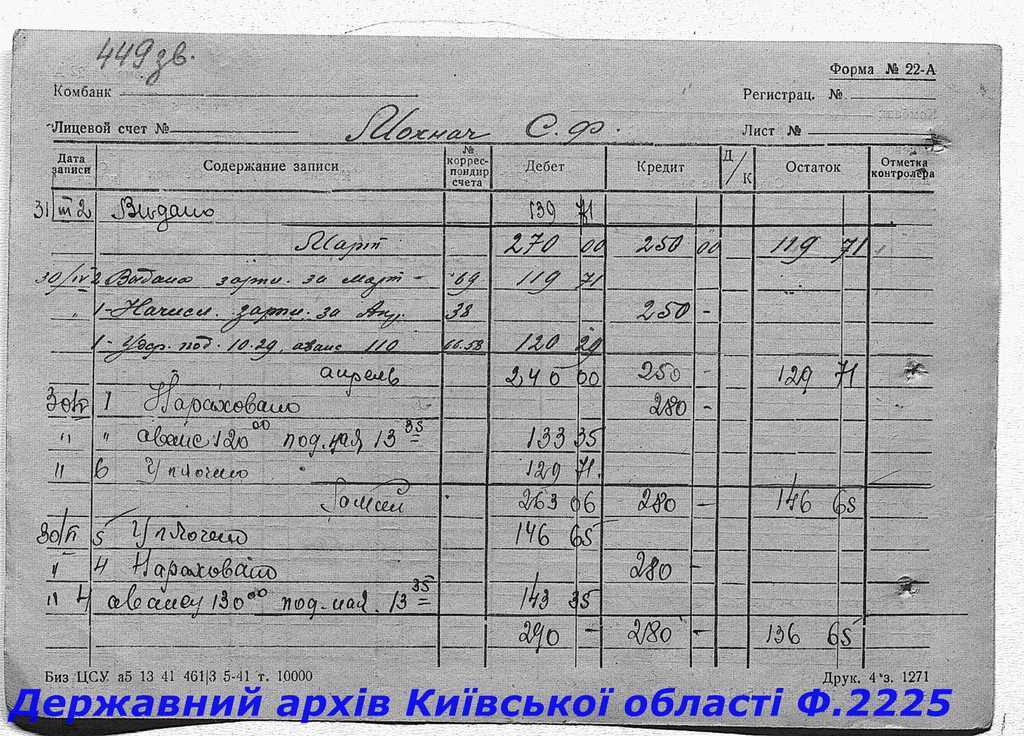 449 зв.
Форма № 22-А
Комбанк
Регистрац. №
Лицевой счет №
Мохнач С. Ф.
Лист №
Дата записи Содержание записи № коррес-пондир счета Дебет Кредит Д/К Остаток Отметка контролера
31/III 2 Видано 139 71
Март 270 00 250 00 119 71
30/IV 2 Видано зарпл. за март - 69 119 71
" 1 - Начисл. зарпл. за Апр. 38 250 -
1 - Удер. под. 10.29, аванс 110 66.58 120 29
апрель 240 00 250 129 71
30/V 1 Нараховано 280 -
" " аванс 120 00 под. ная 13 35 133 35
" 6 Уплочено 129 71.
263 06 280 - 146 65
30/VI 5 Уплочено 146 65
" 4 Нараховано 280 -
" 4 авансу 130 00 под-ная. 13 35 143 35
290 - 280 - 136 65
Биз ЦСУ. а5 13 41 461|3 5-41 т. 10000
Друк. 4 з. 1271
Державний архів Київської області Ф.2225